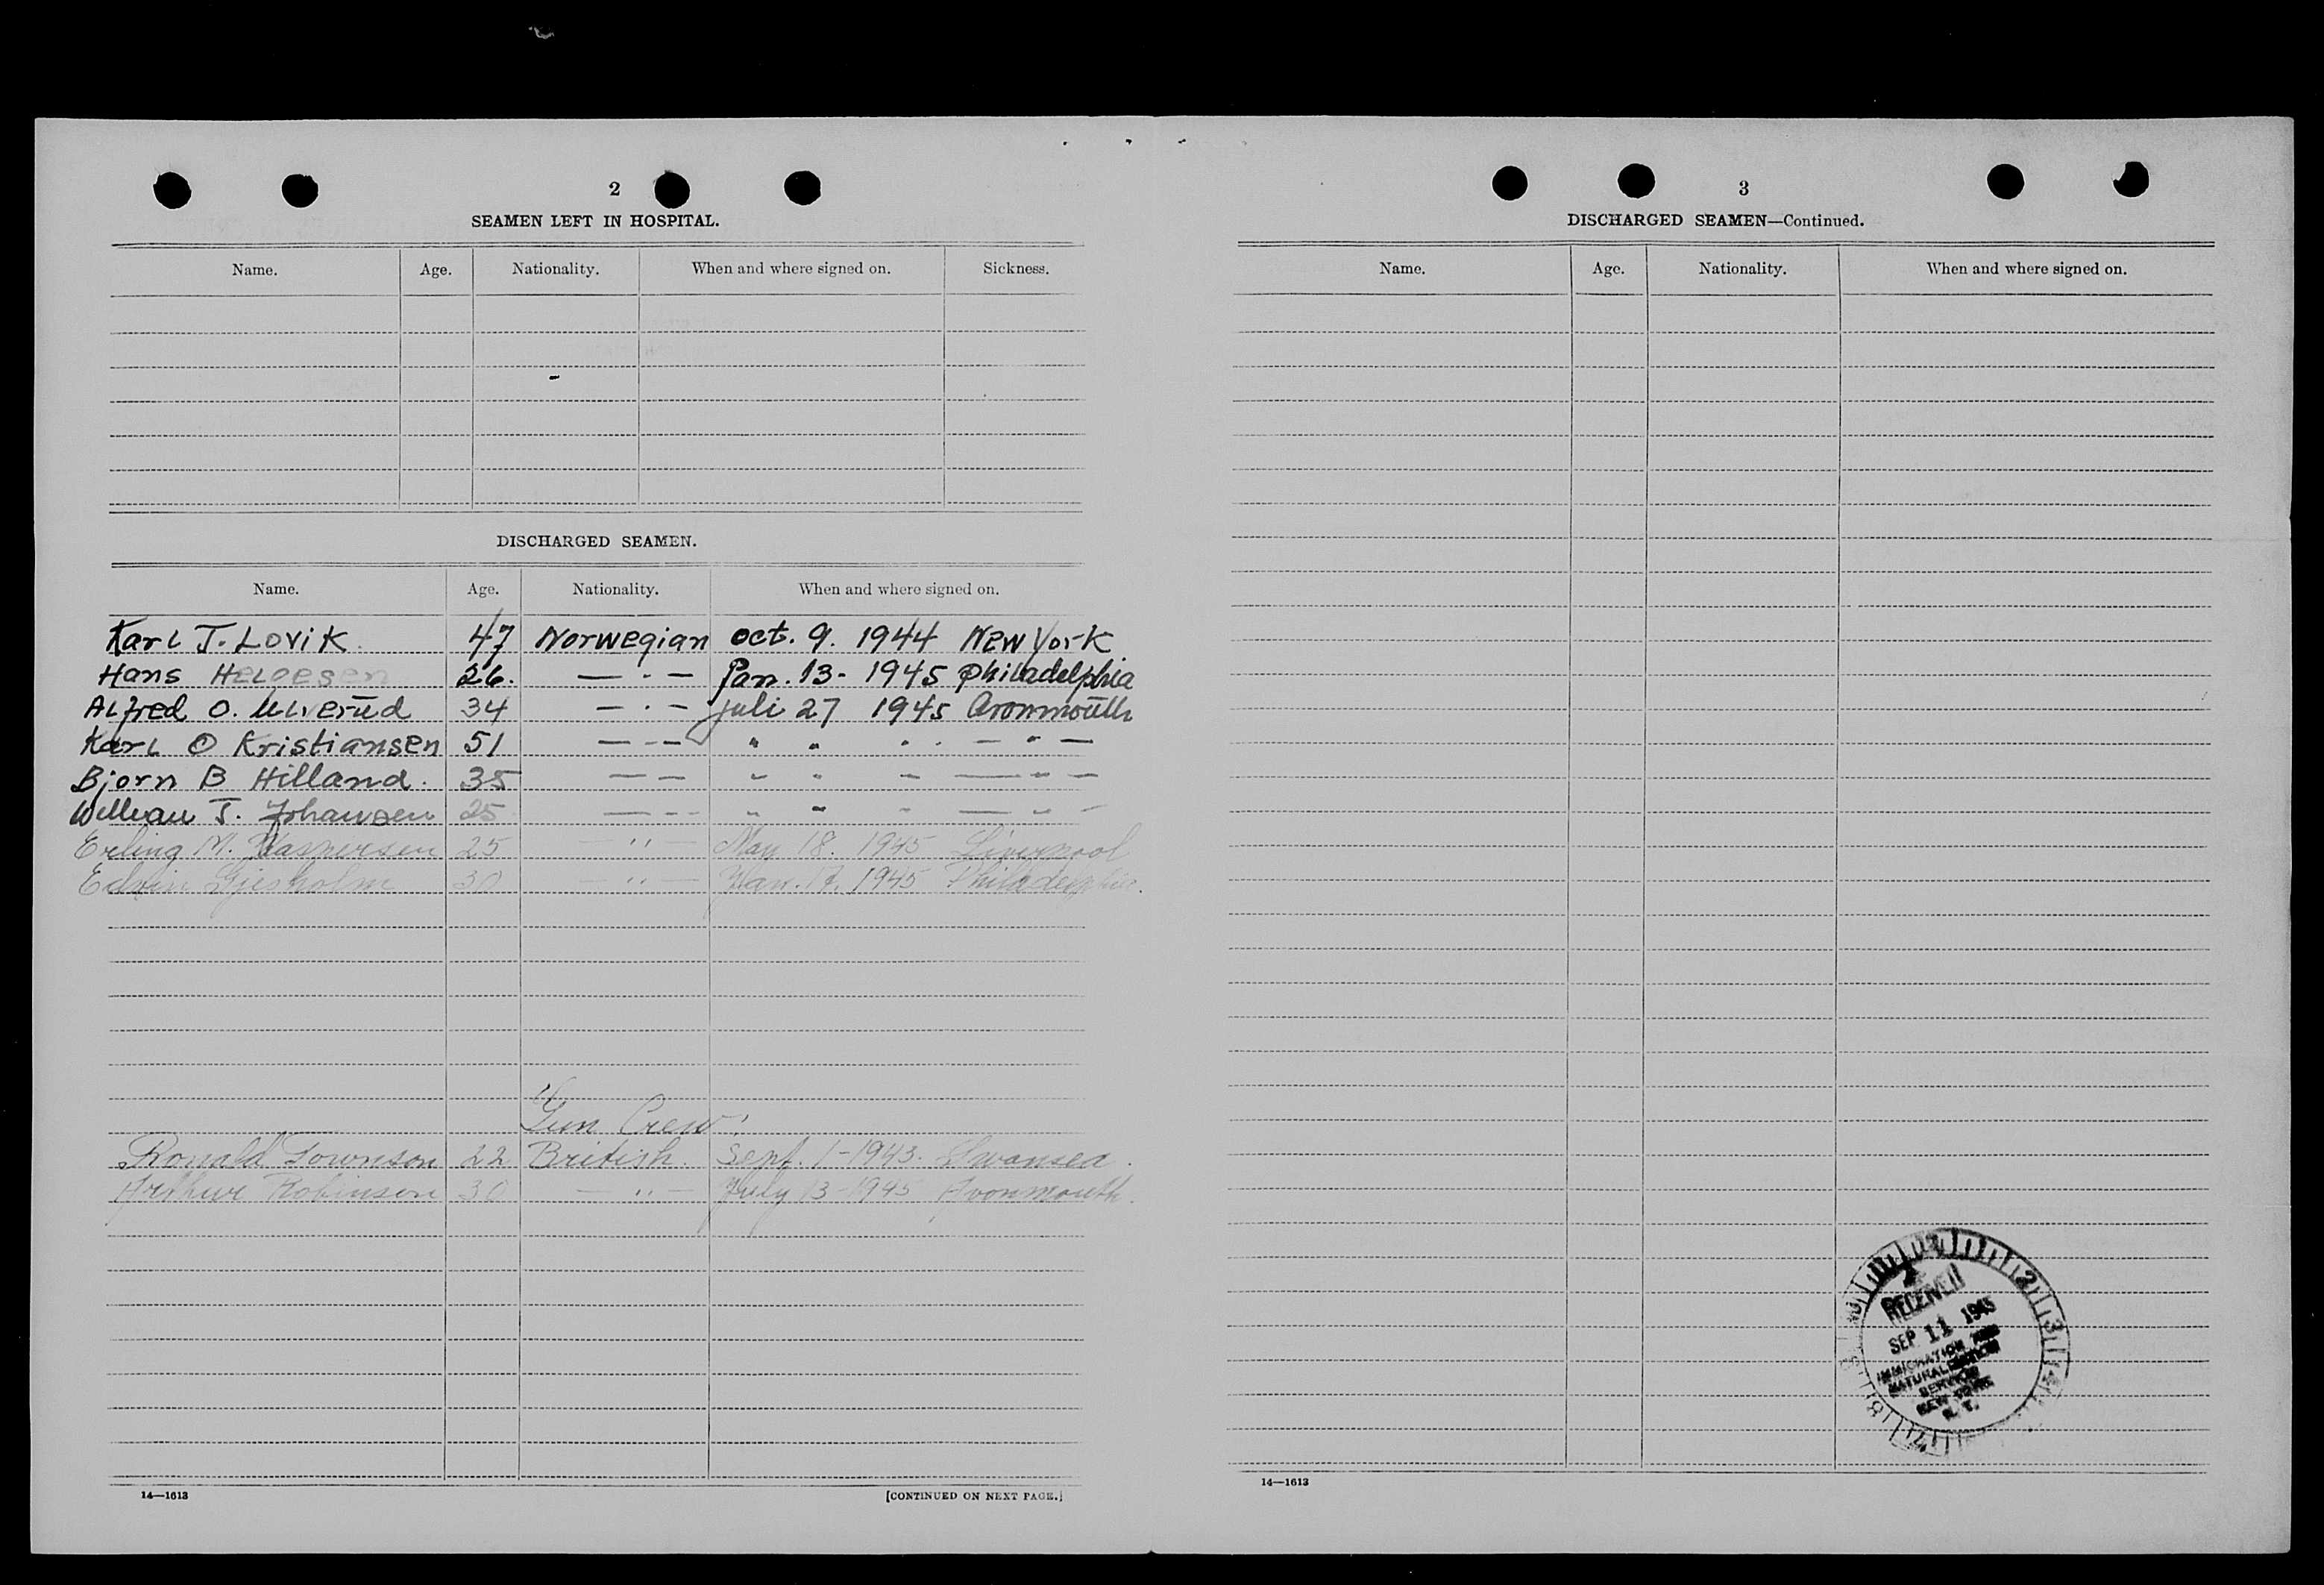 2
SEAMEN LEFT IN HOSPITAL.
Name. Age. Nationality. When and where signed on. Sickness.
DISCHARGED SEAMEN.
Name. Age. Nationality. When and where signed on.
Karl J. Lovik. 47 Norwegian oct. 9. 1944 New York
Hans Helgesen 26. — · — Jan. 13 - 1945 Philadelphia
Alfred O. Ulverud 34 — · — juli 27 1945 Avonmouth
Karl O Kristiansen 51 — - — " " " " — " —
Bjorn B Hilland. 35 — — " " " — " —
William J. Johansen 25 — - - " " " — " —
Erling M. Kaspersen 25 — " — May 18. 1945 Liverpool
Edvin Gjesholm 30 — " — Jan. 17. 1945 Philadelphia.
Gun Crew:
Ronald Townson 22 British. Sept. 1-1943. Swansea.
Arthur Robinson 30 — " — July 13-1945 Avonmouth.
14—1613 [CONTINUED ON NEXT PAGE.]
3
DISCHARGED SEAMEN—Continued.
Name. Age. Nationality. When and where signed on.
RECEIVED
SEP 11 1945
IMMIGRATION AND
NATURALIZATION
SERVICE
NEW YORK
N.Y.
14—1613